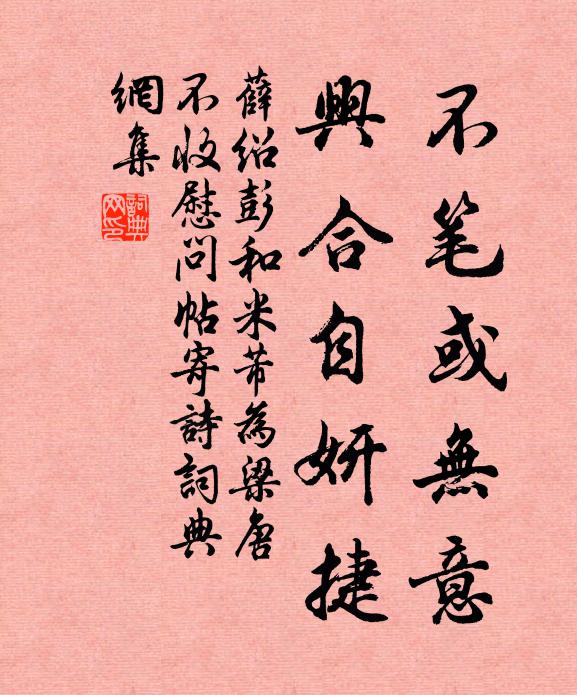 不笔或無意
興合自妍捷
薛紹彭和米芾為梁唐
不收慰問帖寄詩詞典
網集
詞典網印